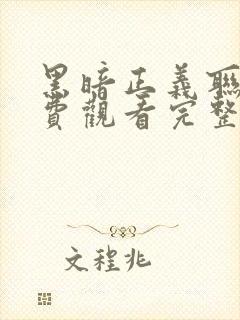 黑暗正義聯
費觀看完整
文程兆